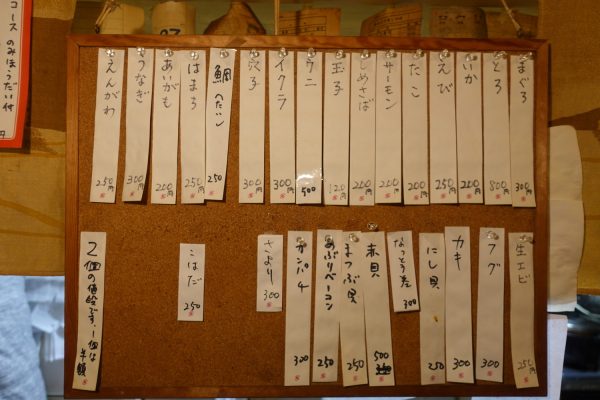 まぐろ 300円
とろ 800円
いか 200円
えび 250円
たこ 200
サーモン 200
めさば 200
玉子 120
ウニ 500
イクラ 300
穴子 300
鯛 250
はまち 250円
あいがも 200円
うなぎ 300円
えんがわ 250円
生エビ 250
フグ 300
カキ 300
にし貝 250
なっとう巻 300
赤貝 500
まつぶ貝 250
あぶりベーコン 250
カンパチ 300
さより 300
こはだ 250
2個の値段です、1個は半額
コース のみほうだい付
円